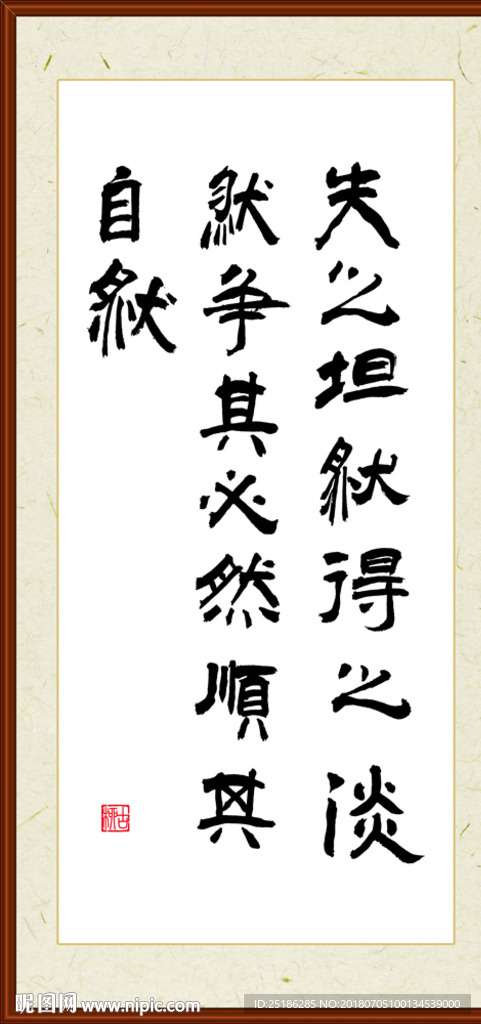 失之坦然得之淡
然争其必然順其
自然
昵图网 www.nipic.com
ID:25186285 NO:20180705100134539000